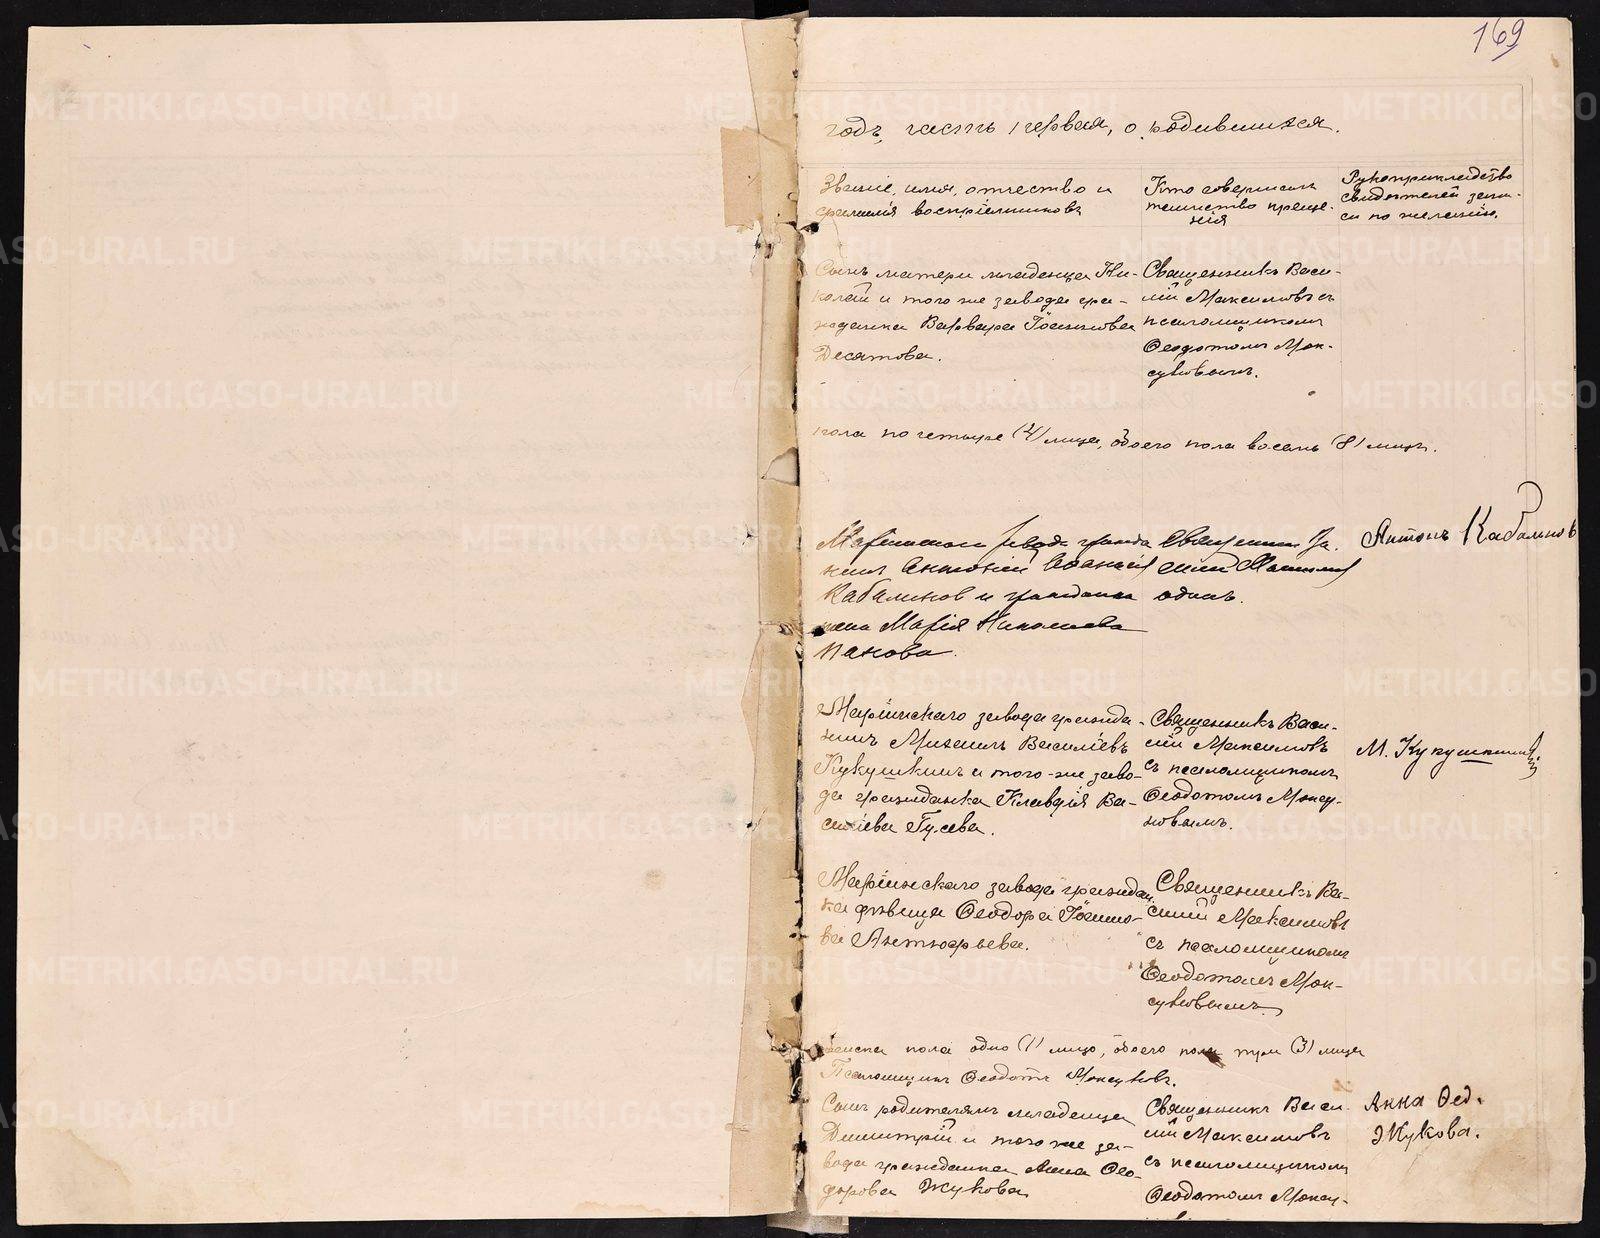 169
годъ, часть первая, о родившихся.
Званіе, имя, отчество и
фамилія воспріемниковъ
Кто совершалъ
таинство креще-
нія
Рукоприкладство
свидѣтелей запи-
си по желанію.
Сынъ матери младенца Ни-
колай и того же завода гра-
жданка Варвара Іоаннова
Десятова.
Священникъ Васи-
лій Максимовъ съ
псаломщикомъ
Ѳеодотомъ Мок-
суновымъ.
пола по четыре (4) лица, обоего пола восемь (8) лицъ.
Маріинскаго завода гражда
нинъ Антоній
Кабалинов и гражданка
Марія Николаева
Панова.
Священник Ва.
силій Максимов
одинъ.
Антонъ Кабалинов
Маріинскаго завода гражда-
нинъ Михаилъ Василіевъ
Кукушкинъ и того-же заво-
да гражданка Клавдія Ва-
силіева Гусева.
Священникъ Васи-
лій Максимовъ
съ псаломщикомъ
Ѳеодотомъ Моксу-
новымъ.
М. Кукушкинъ.
Маріинскаго завода граждан
ка дѣвица Ѳеодора Іоанно-
ва Антюфьева.
Священникъ Ва-
силій Максимовъ
съ псаломщикомъ
Ѳеодотомъ Мок-
суновымъ.
женска пола одно (1) лицо, обоего пола три (3) лица
Псаломщикъ Ѳеодотъ Моксуновъ.
Сынъ родителямъ младенца
Димитрій и того же за-
вода гражданка Анна Ѳео-
дорова Жукова
Священникъ Васи-
лій Максимовъ
съ псаломщикомъ
Ѳеодотомъ Моксу-
Анна Ѳед.
Жукова.
METRIKI.GASO-URAL.RU